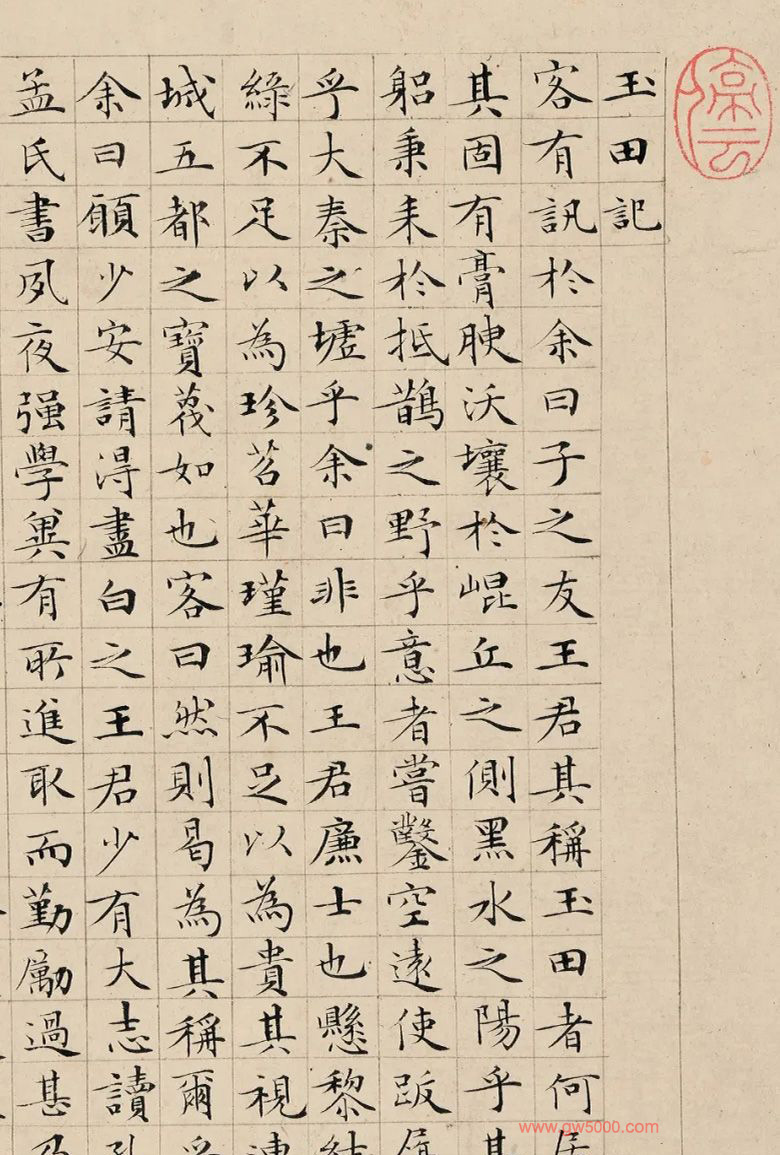 玉田記
客有訊於余曰子之友王君其稱玉田者何居
其固有膏腴沃壤於崐丘之側黑水之陽乎其
躬秉耒於抵鵲之野乎意者嘗鑿空遠使跋
乎大秦之墟乎余曰非也王君廉士也懸黎結
綠不足以為珍苕華瑾瑜不足以為貴其視連
城五都之寶蔑如也客曰然則曷為其稱爾乎
余曰願少安請得盡白之王君少有大志讀孔
孟氏書夙夜强學冀有所進取而勤勵過甚乃
www.gw5000.com